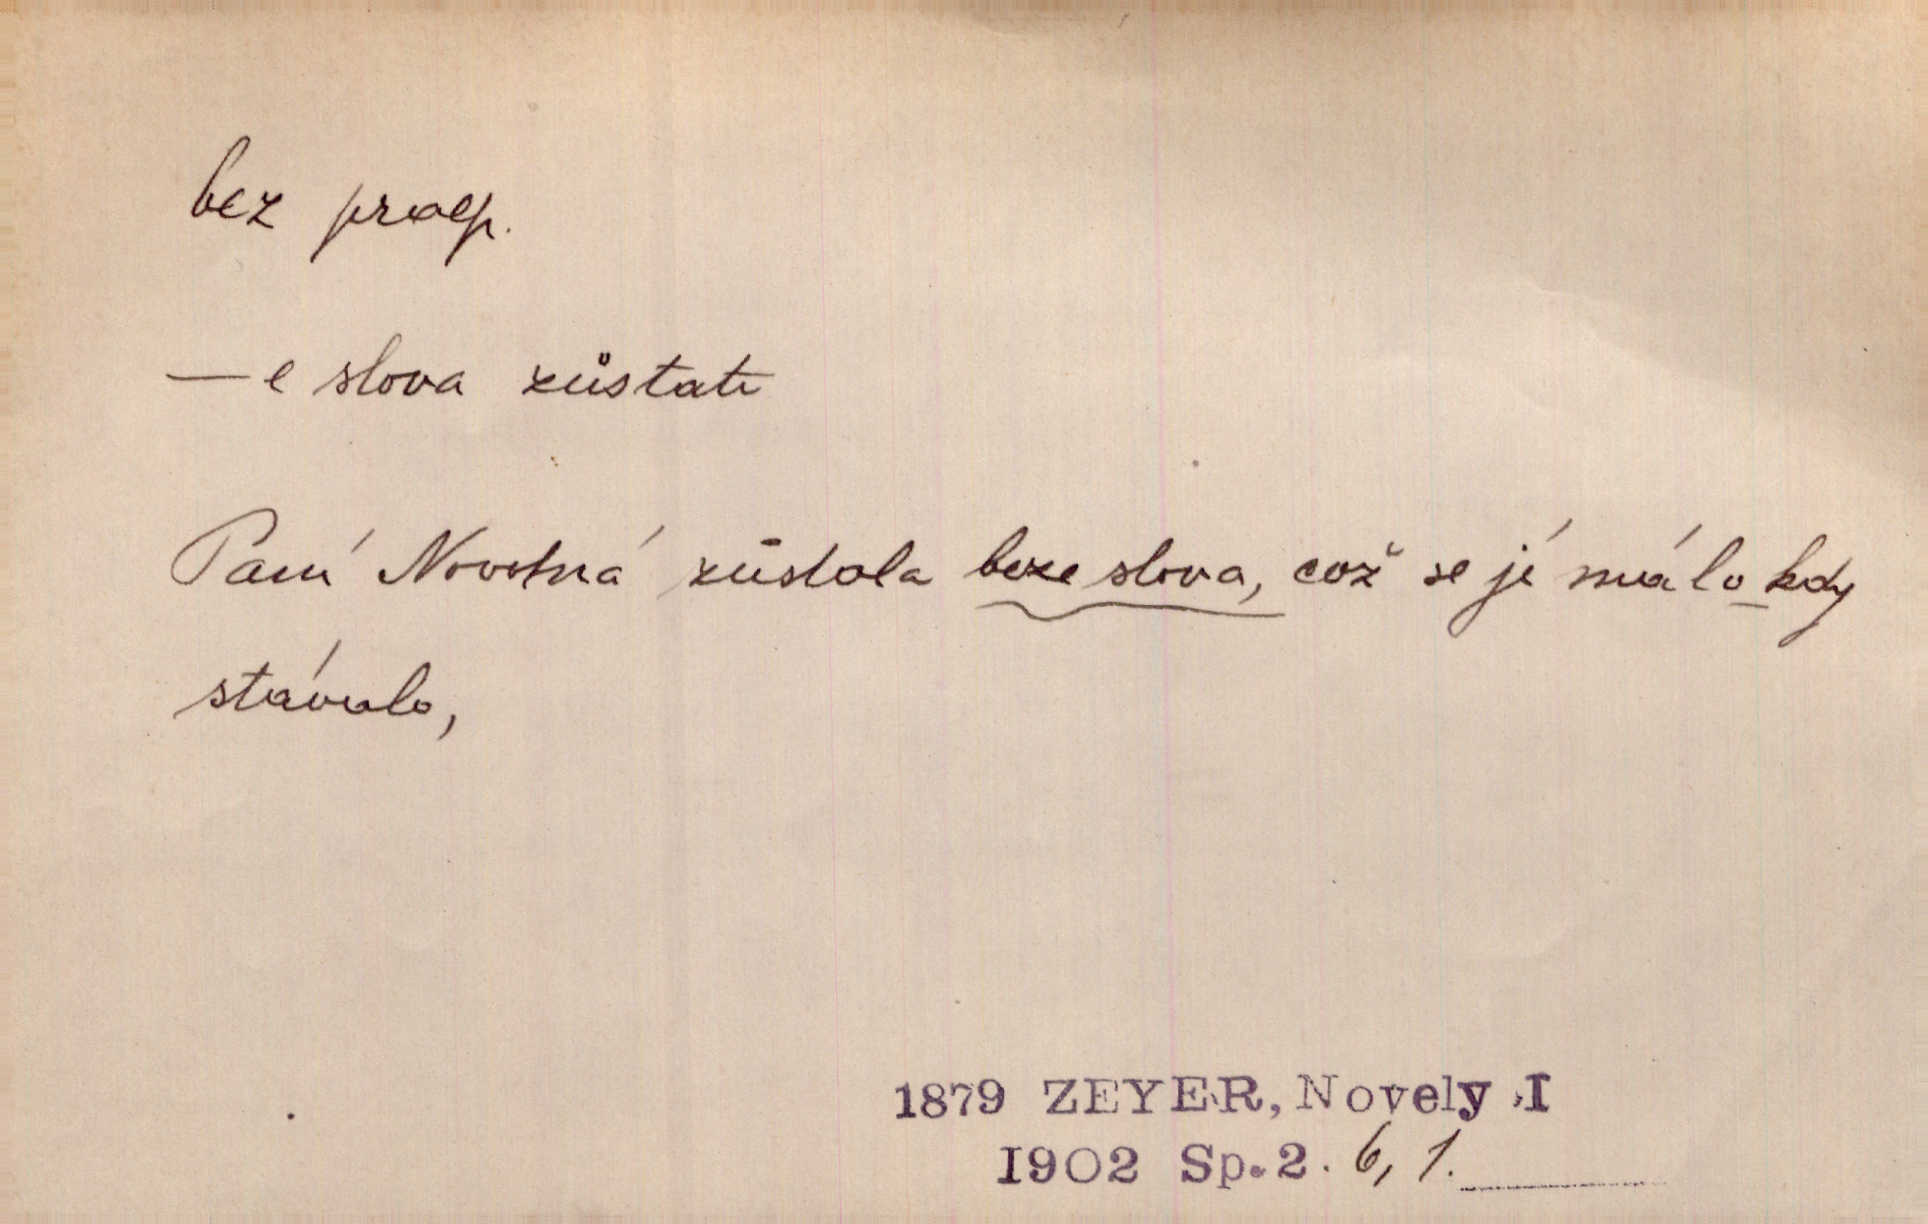 bez praep.
—e slova zůstati
Paní Novotná zůstala beze slova, což se jí málo kdy
stávalo,
1879 ZEYER, Novely I
1902 Sp.2. 6, 1.